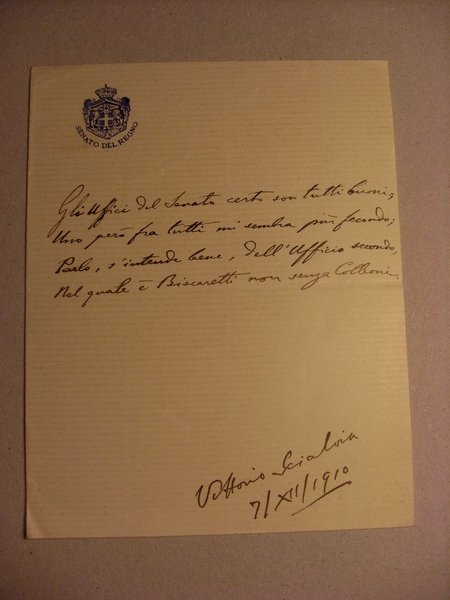 SENATO DEL REGNO
Gli Uffici del Senato certo son tutti buoni;
Uno però fra tutti mi sembra più fecondo;
Parlo, s'intende bene, dell'Ufficio secondo,
Nel quale è Biscaretti non senza Colleoni.
Vittorio Scialoia
7/XII/1910